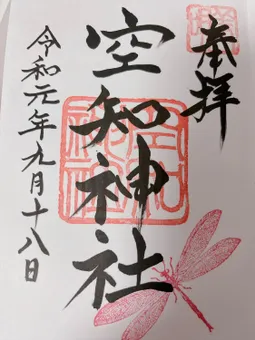 奉拝
空知神社
令和元年九月十八日